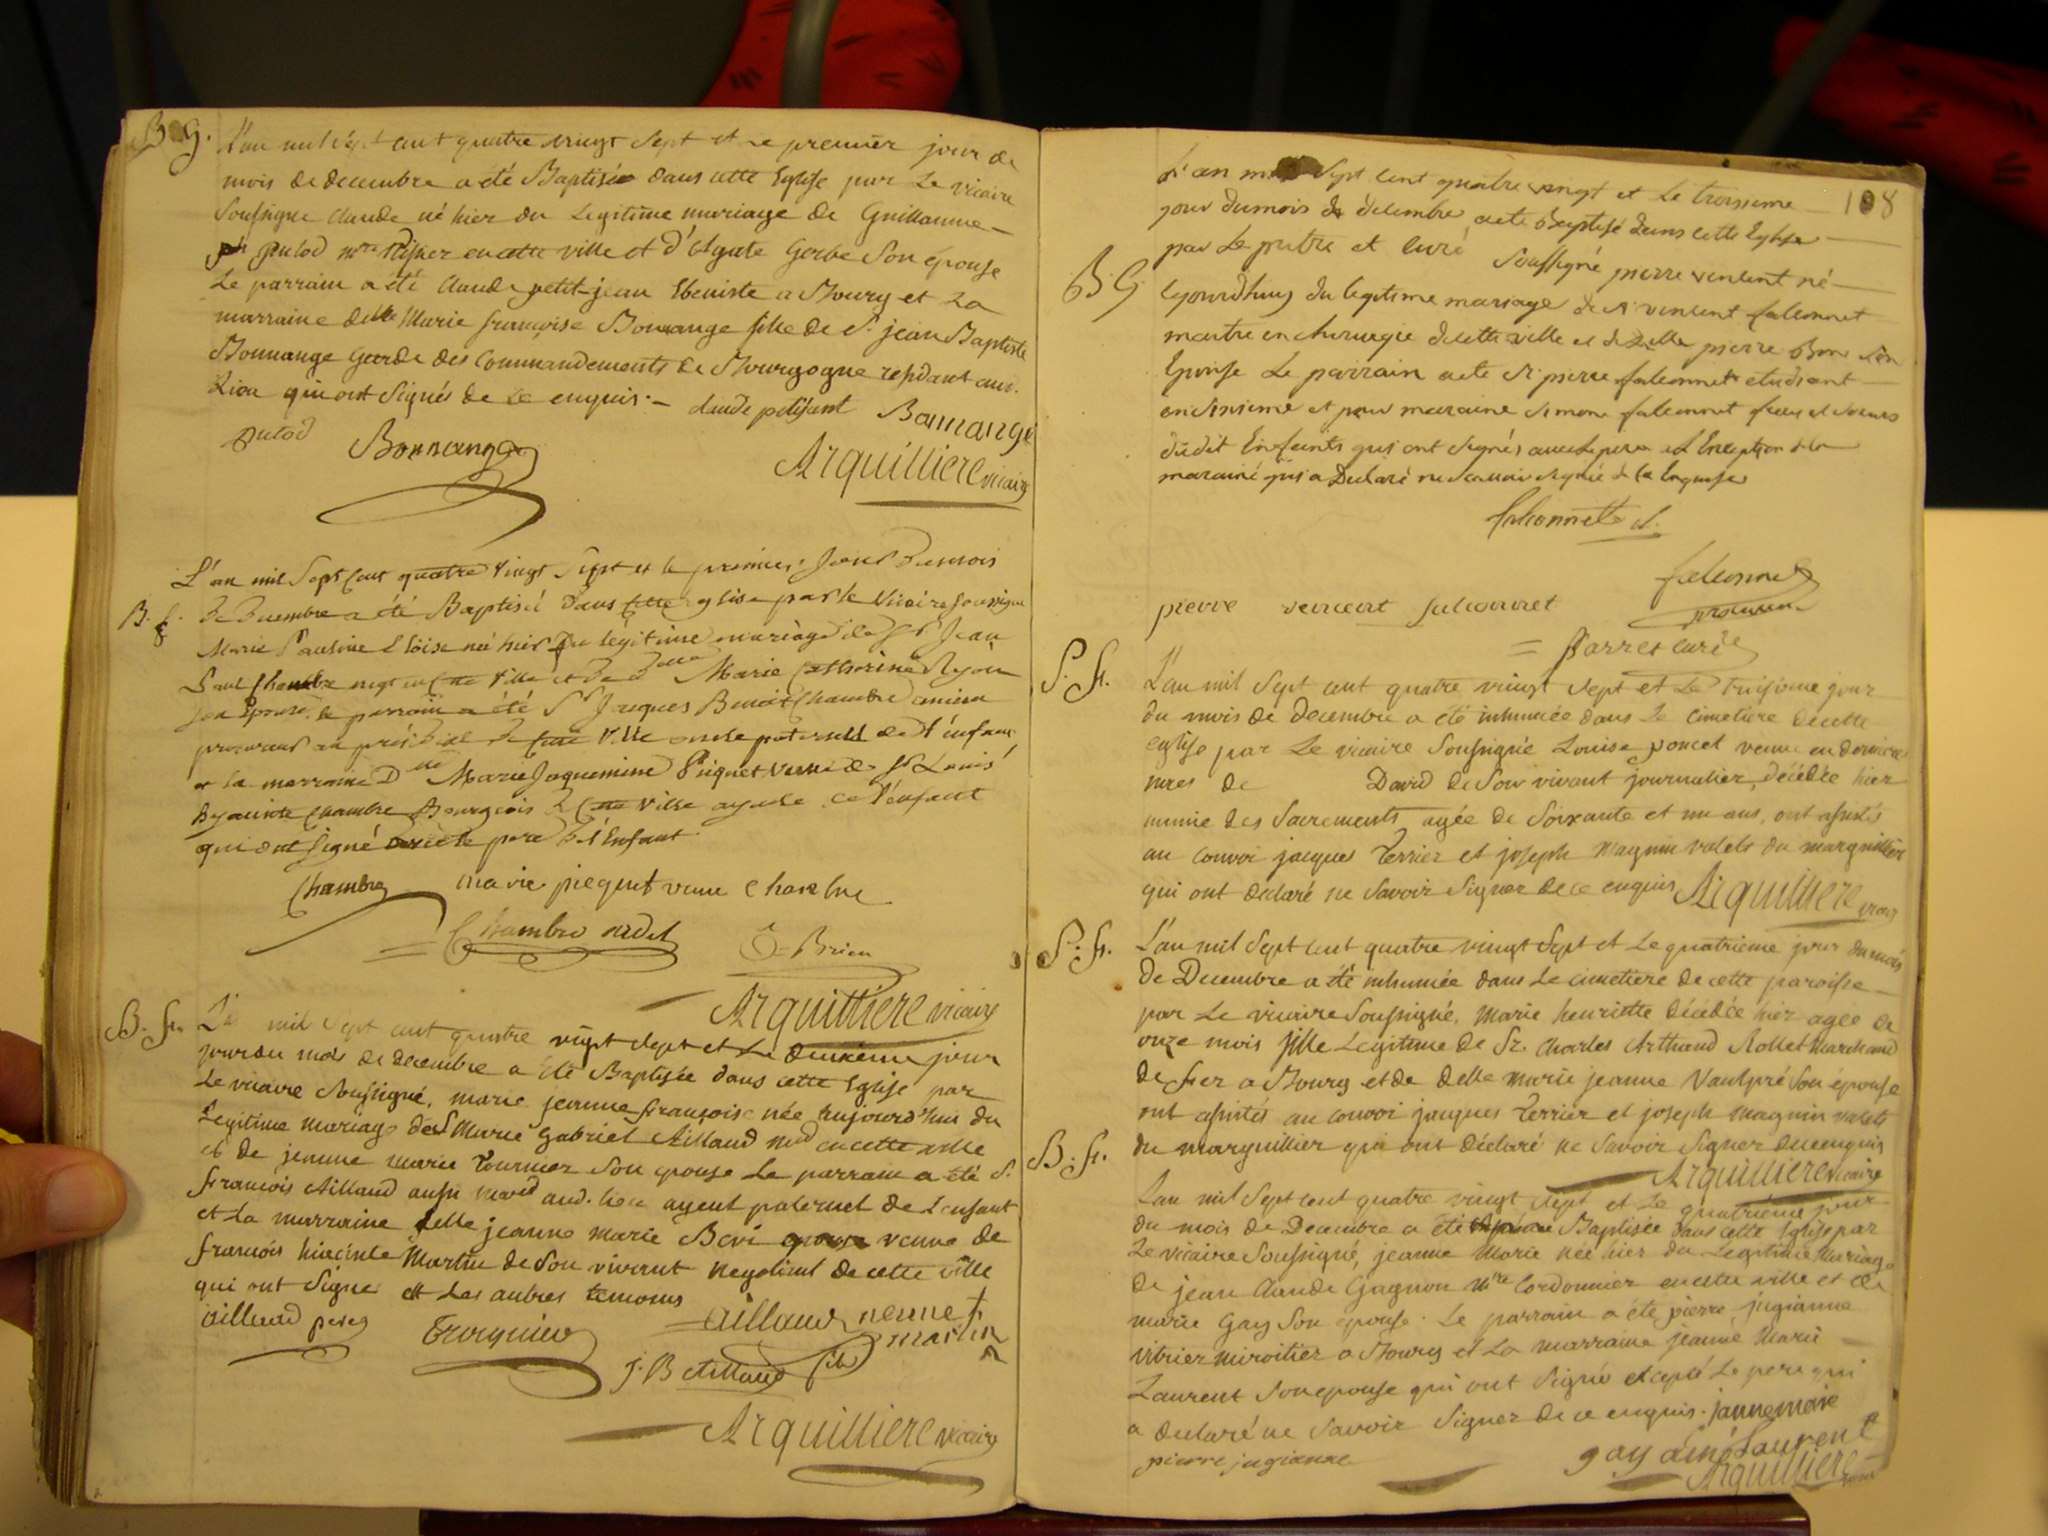 B G.
L'an mil sept cent quatre vingt sept et le premier jour de
mois de decembre a été Baptisée dans cette Eglise par Le vicaire
Soussigne claude né hier du Legitime mariage de Guillaume
putod mtre en cette ville et d'Agate Gerbe Son épouse
Le parrain a été Claude petit-jean Ebeniste a Bourg et La
marraine delle Marie françoise Bonnange fille de Sr. jean Baptiste
Bonnange Garde des Commandements de Bourgogne residant aud.
Lieu qui ont Signés de ce enquis. claude petijant Bonnange
putod Bonnange
Arquilliere vicaire
L'an mil Sept Cent quatre vingt Sept et le premier Jour du mois
B. f.
de Decembre a été Baptisé dans Cette église par le Vicaire soussigné
Marie Pauline Eloise né hier Du légitime mariage de Sr Jean
Paul Chambre negt en Cette Ville et De Delle Marie Catherine
son Epouse. le parrain a été Sr Jacques Benoit Chambre ancien
procureur au présidial de Cette Ville oncle paternel de l'enfant
et la marraine Dlle Marie Jaquemine Piquet veuve de Sr Louis
hyacinte Chambre Bourgeois de Cette Ville ayeule de l'enfant
qui ont signé avec le pere de l'Enfant.
Chambre marie piequet veuve Chambre
Chambre cadet Brien
Arquilliere vicaire
B. f.
L'an mil Sept cent quatre vingt Sept et Le deuxieme jour
jour du mois de decembre a été Baptisée dans cette Eglise par
Le vicaire Soussigné, marie jeanne françoise née aujourd'hui du
Legitime mariage de Sr Marie Gabriel Aillaud md en cette ville
et de jeanne marie Tournier Son epouse Le parrain a été Sr.
françois Aillaud aussi marcd aud. lieu ayeul paternel de L'enfant
et La marraine delle jeanne marie veuve de
françois hiacinte Martin de Son vivant negotiant de cette ville
qui ont Signe et Les autres temoins
aillaud pere aillaud venne f
martin
J. B Aillaud fils
Arquilliere vicaire
108
L'an mil Sept cent quatre vingt et Le troisieme
jour du mois de decembre a eté Baptisé dans cette Eglise
par Le pretre et curé Soussigné pierre vincent né
B G
aujourdhuy du legitime mariage de Sr vincent falconnet
maitre en chirurgie de cette ville et de delle pierre Bon son
Epouse Le parrain a eté Sr pierre falconnet etudiant
en sixieme et pour maraine Simone falconnet frere et soeurs
dudit Enfants qui ont signés avec le pere a L'Exeption de la
maraine qui a Declaré ne Scavoir signée de ce Enquise
falconnet d.
falconnet
pierre vencent falconnet
= parret curé
S. f.
L'an mil Sept cent quatre vingt Sept et Le troisieme jour
du mois de decembre a été inhumée dans Le cimetiere de cette
eglise par Le vicaire Soussigné Louise poncet veuve en dernieres
nopces de David de Son vivant journalier, décédée hier
munie des Sacrements agée de Soixante et un ans, ont assistés
au convoi jacques Terrier et joseph magnin valets du marguillier
qui ont déclaré ne Savoir Signer de ce enquis Arquilliere vicaire
S. f.
L'an mil Sept cent quatre vingt Sept et Le quatrieme jour du mois
de Decembre a été inhumée dans Le cimetiere de cette paroisse
par Le vicaire Soussigné, marie henriette décédée hier agée de
onze mois fille Legitime de Sr. Charles Arthaud Rollet Marchand
de fer a Bourg et de delle marie jeanne Vaulpré Son épouse
ont assistés au convoi jacques Terrier et joseph magnin valets
du marguillier qui ont déclaré ne Savoir Signer de ce enquis
Arquilliere vicaire
B. f.
L'an mil Sept cent quatre vingt Sept et Le quatriéme jour
du mois de Decembre a été Baptisée dans cette Eglise par
Le vicaire Soussigné, jeanne Marie née hier du Legitime Mariage
de jean Claude Gagnon mtre Cordonnier en cette ville et de
marie Gay Son epouse. Le parrain a été pierre jugianne
vitrier miroitier a Bourg et La marraine jeanne Marie
Laurent Son epouse qui ont Signés excepté Le pere qui
a declaré ne Savoir Signer de ce enquis. jannemarie
pierre jugianne gay ainé Laurent
Arquilliere